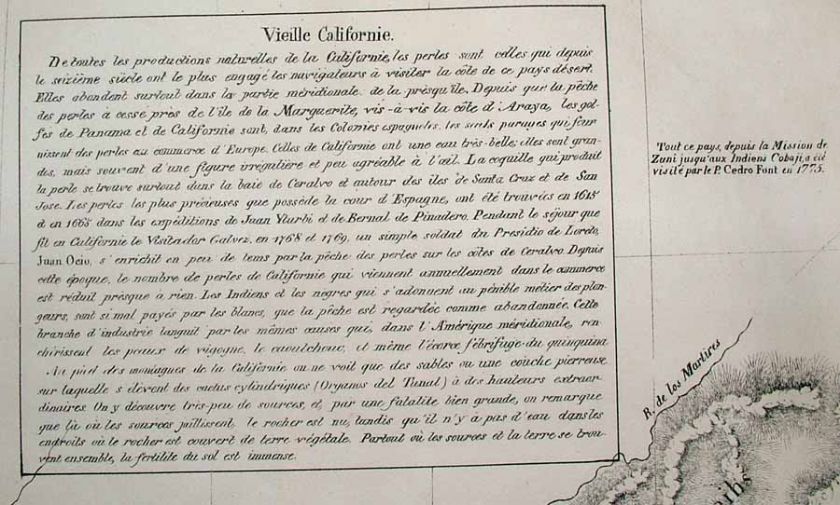 Vieille Californie.
De toutes les productions naturelles de la Californie, les perles sont celles qui depuis
le seizième siècle ont le plus engagé les navigateurs à visiter la côte de ce pays désert.
Elles abondent surtout dans la partie méridionale de la presqu'ile. Depuis que la pêche
des perles à cessé près de l'île de la Marguerite, vis-à-vis la côte d'Araya, les gol-
fes de Panama et de Californie sont, dans les Colonies espagnoles, les seuls parages qui four
nissent des perles au commerce d'Europe. Celles de Californie ont une eau très-belle; elles sont gran-
des, mais souvent d'une figure irrégulière et peu agréable à l'œil. La coquille qui produit
la perle se trouve surtout dans la baie de Ceralvo et autour des îles de Santa Cruz et de San
Jose. Les perles les plus précieuses que possède la cour d'Espagne, ont été trouvées en 1615
et en 1665 dans les expéditions de Juan Yturbi et de Bernal de Pinadero. Pendant le séjour que
fit en Californie le Visitador Galvez, en 1768 et 1769, un simple soldat du Presidio de Loreto,
Juan Ocio, s'enrichit en peu de tems par la pêche des perles sur les côtes de Ceralvo. Depuis
cette époque, le nombre de perles de Californie qui viennent annuellement dans le commerce
est réduit presque à rien. Les Indiens et les nègres qui s'adonnent au pénible métier des plon-
geurs, sont si mal payés par les blancs, que la pêche est regardée comme abandonnée. Cette
branche d'industrie languit par les mêmes causes que, dans l'Amérique méridionale, ren
chérissent les peaux de vigogne, le caoutchouc, et même l'écorce fébrifuge du quinquina
Au pied des montagnes de la Californie on ne voit que des sables ou une couche pierreuse
sur laquelle s'élèvent des cactus cylindriques (Organos del Tunal) à des hauteurs extraor-
dinaires. On y découvre très-peu de sources, et, par une fatalité bien grande, on remarque
que là où les sources jaillissent, le rocher est nu, tandis qu'il n'y à pas d'eau dans les
endroits où le rocher est couvert de terre végétale. Partout où les sources et la terre se trou-
vent ensemble, la fertilité du sol est immense.
Tout ce pays, depuis la Mission de
Zuni jusqu'aux Indiens Cobaji, a été
visité par le P. Cedro Font en 1775.
R. de los Martires